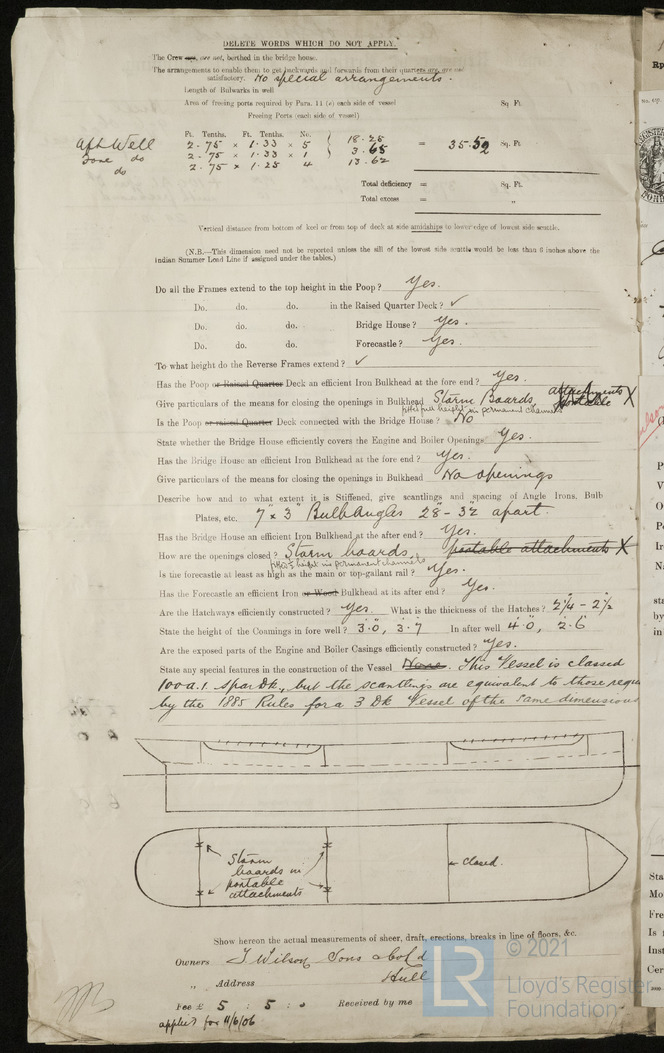 DELETE WORDS WHICH DO NOT APPLY.
The Crew are, are not, berthed in the bridge house.
The arrangements to enable them to get backwards and forwards from their quarters are, are not
satisfactory. No special arrangements.
Length of Bulwarks in well
Area of freeing ports required by Para. 11 (e) each side of vessel Sq. Ft.
Freeing Ports (each side of vessel)
Ft. Tenths. Ft. Tenths. No.
Aft Well 2.75 × 1.33 × 5 18.28
do 2.75 × 1.33 × 1 3.65 = 35.52 Sq. Ft.
do 2.75 × 1.25 4 13.62
Total deficiency = Sq. Ft.
Total excess = "
Vertical distance from bottom of keel or from top of deck at side amidships to lower edge of lowest side scuttle.
(N.B.—This dimension need not be reported unless the sill of the lowest side scuttle would be less than 6 inches above the
Indian Summer Load Line if assigned under the tables.)
Do all the Frames extend to the top height in the Poop? Yes.
Do. do. do. in the Raised Quarter Deck? ✓
Do. do. do. Bridge House? Yes.
Do. do. do. Forecastle? Yes.
To what height do the Reverse Frames extend? ✓
Has the Poop or Raised Quarter Deck an efficient Iron Bulkhead at the fore end? Yes.
Give particulars of the means for closing the openings in Bulkhead Storm Boards, portable attachments X
fitted full height in permanent channels
Is the Poop or raised Quarter Deck connected with the Bridge House? No
State whether the Bridge House efficiently covers the Engine and Boiler Openings Yes.
Has the Bridge House an efficient Iron Bulkhead at the fore end? Yes.
Give particulars of the means for closing the openings in Bulkhead No openings
Describe how and to what extent it is Stiffened, give scantlings and spacing of Angle Irons, Bulb
Plates, etc. 7" × 3" Bulb Angles 28" - 32" apart.
Has the Bridge House an efficient Iron Bulkhead at the after end? Yes.
How are the openings closed? Storm boards, portable attachments X
height in permanent channels
Is the forecastle at least as high as the main or top-gallant rail? Yes.
Has the Forecastle an efficient Iron or Wood Bulkhead at its after end? Yes.
Are the Hatchways efficiently constructed? Yes. What is the thickness of the Hatches? 2¼ - 2½
State the height of the Coamings in fore well? 3.0, 3.7 In after well 4.0, 2.6
Are the exposed parts of the Engine and Boiler Casings efficiently constructed? Yes.
State any special features in the construction of the Vessel None. This Vessel is classed
100.a.1. Spar Dk., but the scantlings are equivalent to those requ
by the 1885 Rules for a 3 Dk Vessel of the same dimensions
Storm
boards in
portable
attachments
Closed.
Show hereon the actual measurements of sheer, draft, erections, breaks in line of floors, &c.
Owners T Wilson Sons & Co Ld
" Address Hull
Fee £ 5 : 5 : 0 Received by me
applied for 11/6/06
LR
© 2021
Lloyd's Register
Foundation